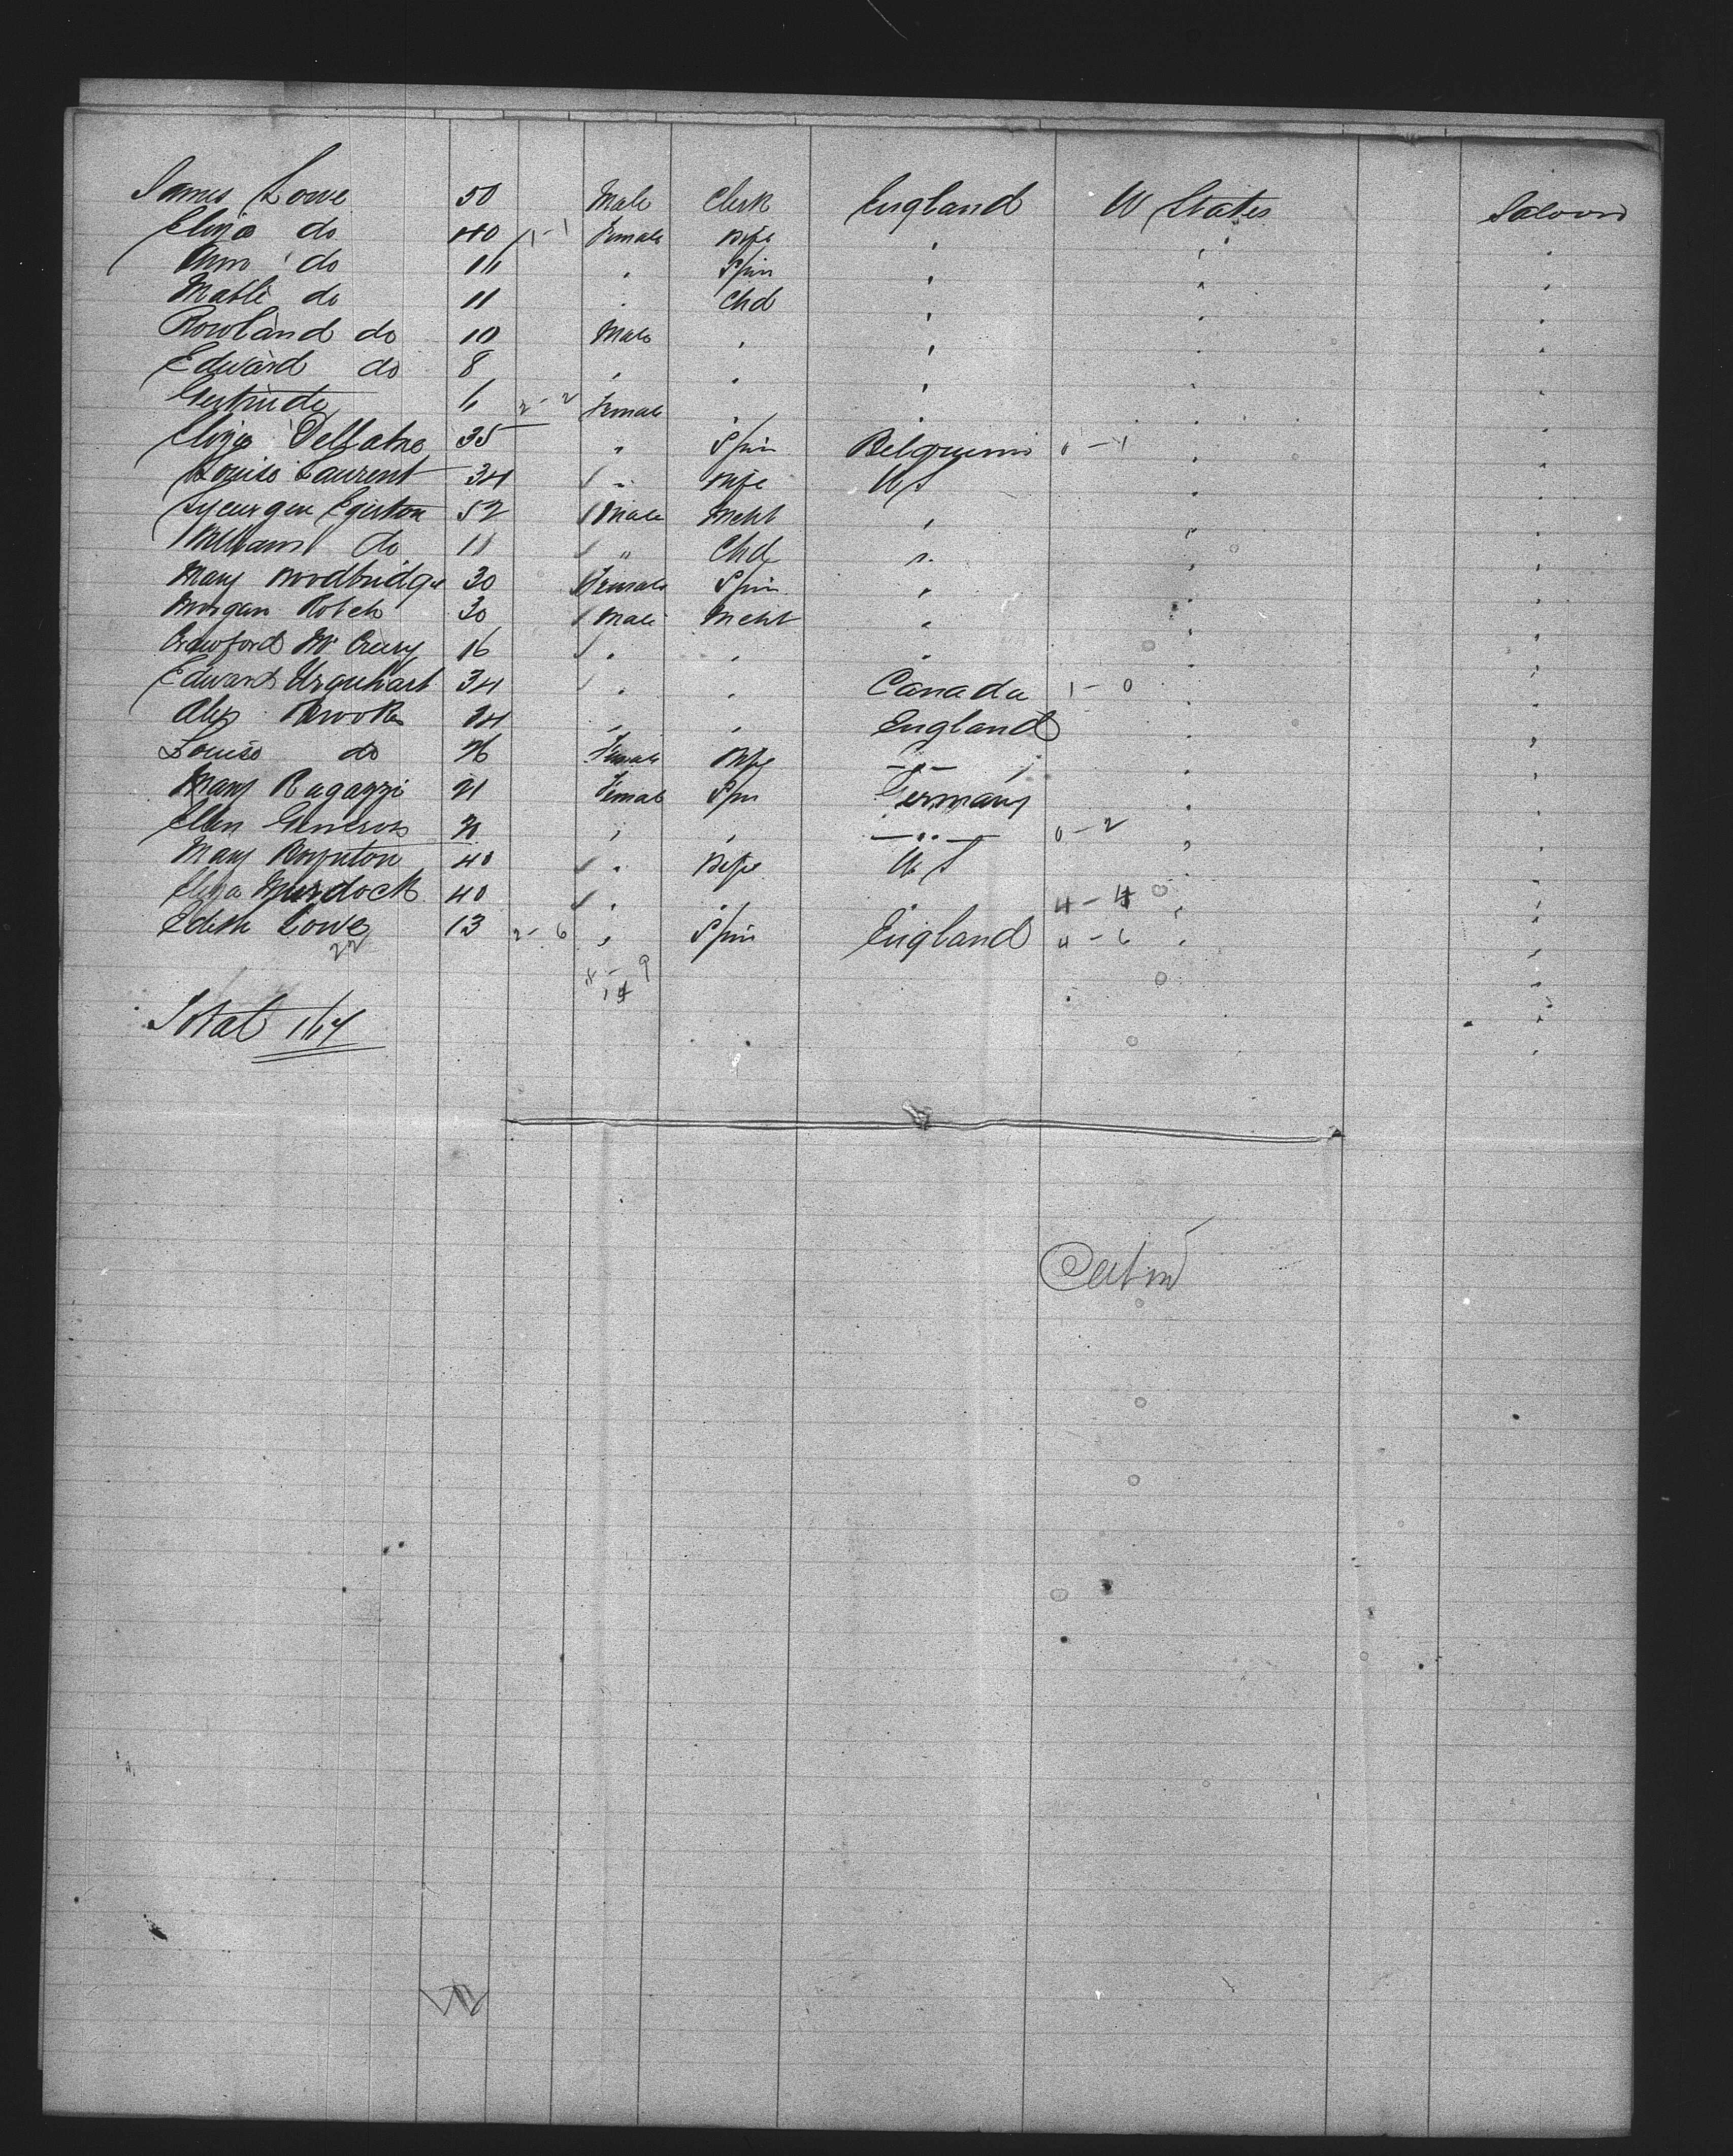 James Lowe 50 Male Clerk England U States Saloon
Eliza do 40 1-1 Female Wife " " "
Ann do 16 " Spin " " "
Mable do 11 " Chd " " "
Rowland do 10 Male " " " "
Edward do 8 " " " " "
Gertrude 6 2-2 Female " " " "
Eliza Delfatre 35 " Spin Belgruim 0-1 " "
Louise Laurent 34 " Wife US " "
Lycurgus Egerton 52 Male Mcht " " "
William do 11 " Chd " " "
Mary Woodbridge 30 Female Spin " " "
Morgan Rotch 30 Male Mcht " " "
Crawford Mc Creery 16 " " " " "
Edward Urquhart 34 " " Canada 1-0 " "
Alex Brooks " " England " "
Louise do 26 Female Wife -"- " "
Mary Ragazzi 21 Female Spin Germany " "
Ellen " " -"- 0-2 " "
Mary Boynton 40 " Wife U S " "
Eliza Murdock 40 " " " 4-4 " "
Edith Lowe 13 2-6 " Spin England 4-6 " "
22
Total 167